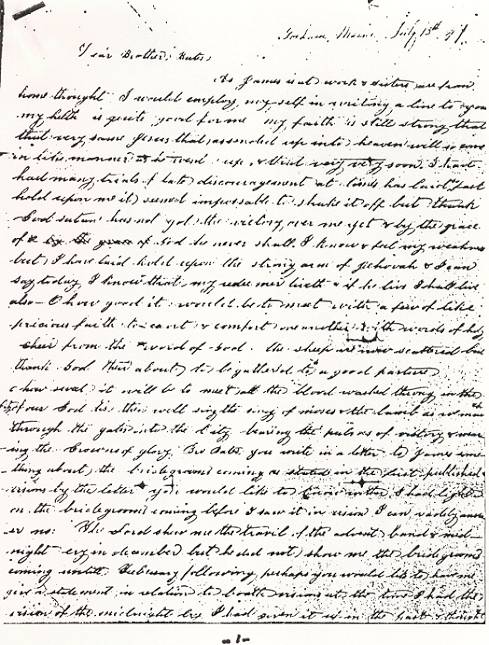 Gorham, Maine, July 13th 47.
Dear Brother Bates,
As James is at work & sisters are from
home thought I would employ my self in writing a line to you
my helth is quite good for me my faith is still strong that
that very same Jesus that ascended up into heaven will so come
in like manner as he went up & that very very soon, I have
had many trials of late discouragement at times has laid fast
hold upon me it seemed impossable to shake it off but thank
God satan has not got the victory over me yet & by the grace
of God he never shall I know & feel my weakness
but I have laid hold upon the strong arm of Jehovah & I can
say today I know that my redeemer liveth & if he lives I shall live
also O how good it would be to meet with a few of like
precious faith to & comfort one another with words of holy
cheer from the word of God. the sheep are now scattered but
thank God about to be gathered to a good pasture
O how sweet it will be to meet all the blood washed throng in the
of our God tis then well sing the song of moses & the lamb as we march
through the gates into the City bearing the palms of victory & wear
ing the Crowns of glory. Bro Bates you write in a letter to James some
thing about the bridegrooms coming as stated in the first published
visions by the letter you would like to know I had light
on the bridegrooms coming before I saw it in vision I can readily answ
er no. The Lord show me the travil of the advent band & mid-
night cry in december but he did not show me the bridegrooms
coming untill February following, perhaps you would like to have me
give a statement in relation to both visions at the time I had the
vision of the midnight cry I had given it up in the past & thought
- 1 -